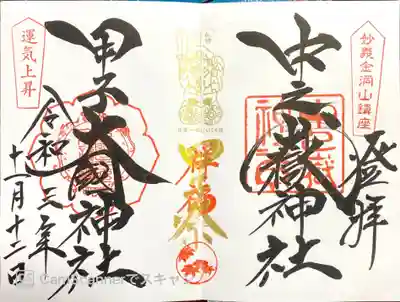 妙義金洞山鎮座
登拝
中之嶽神社
運気上昇
甲子大國神社
令和三年
十一月十二日
CamScannerでスキャン